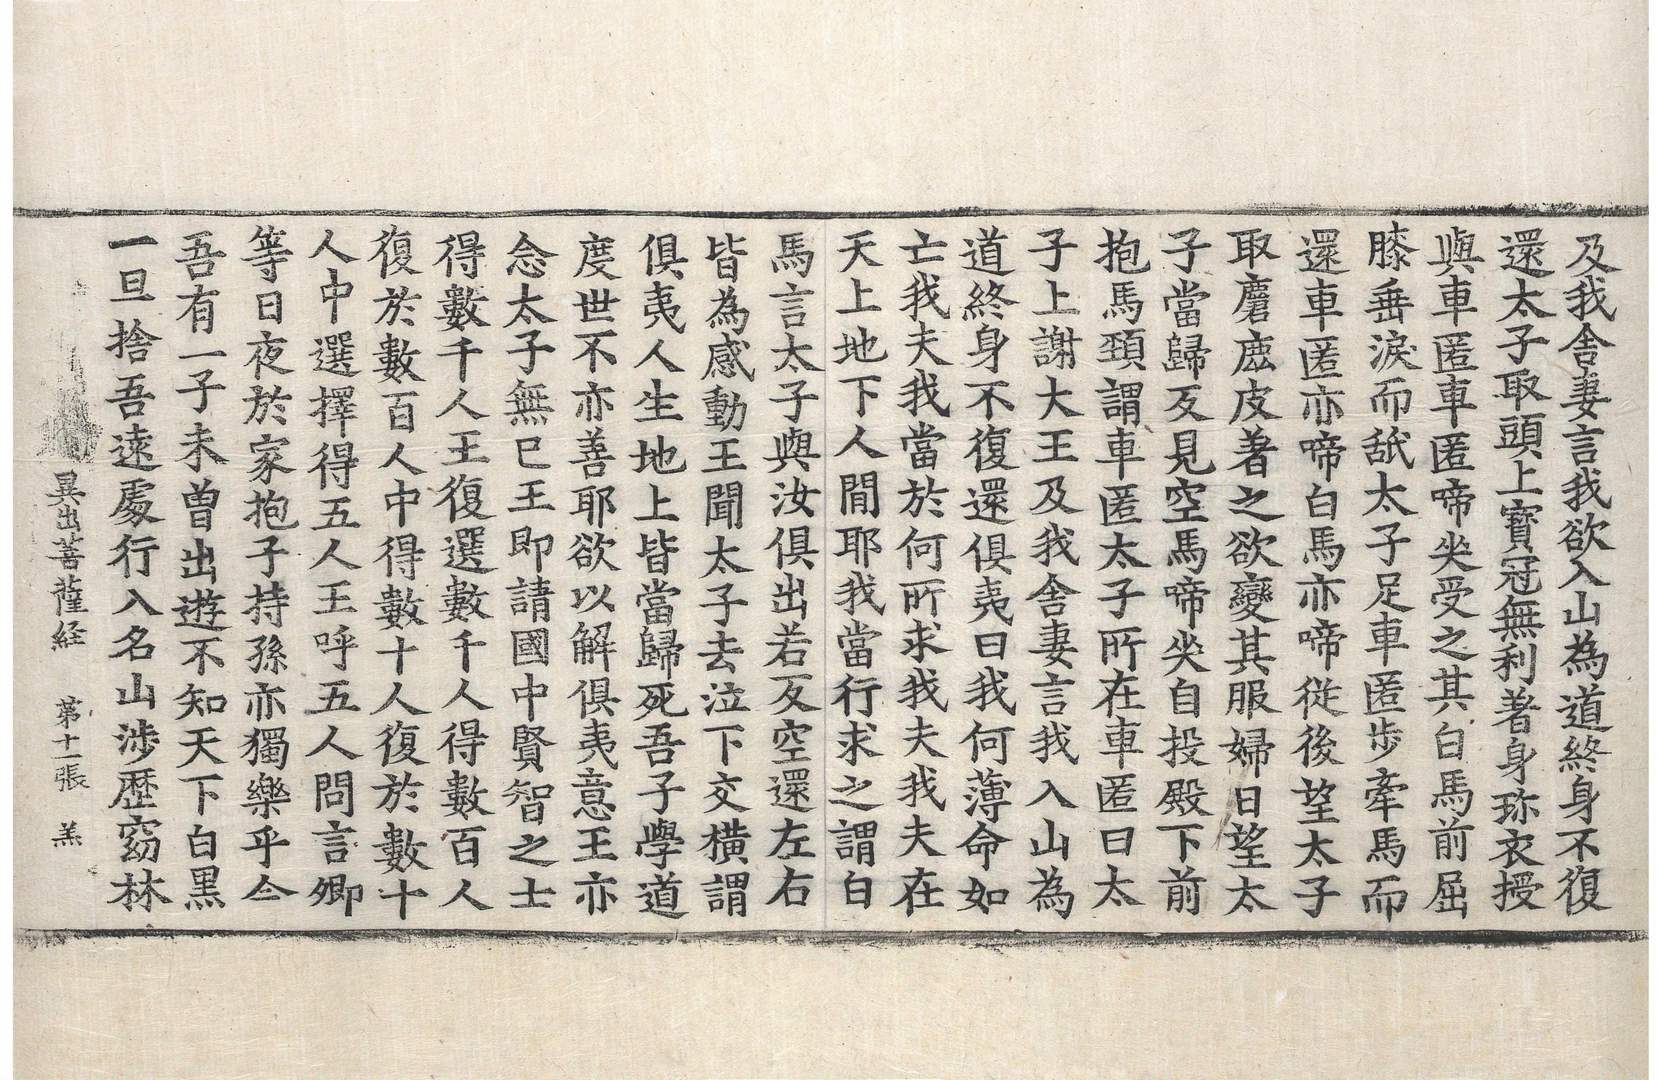 及我舎妻言我欲入山為道終身不復
還太子取頭上寶冠無利著身珎衣授
與車匿車匿啼㘴受之其白馬前屈
膝垂淚而舐太子足車匿步牽馬而
還車匿亦啼白馬亦啼從後望太子
取麐麁皮著之欲變其服婦日望太
子當歸反見空馬啼㘴自投殿下前
抱馬頚謂車匿太子所在車匿曰太
子上謝大王及我舎妻言我入山為
道終身不復還俱夷曰我何薄命如
亡我夫我當於何所求我夫我夫在
天上地下人間耶我當行求之謂白
馬言太子與汝俱出若反空還左右
皆為感動王聞太子去泣下交横謂
俱夷人生地上皆當歸死吾子學道
度世不亦善耶欲以解俱夷意王亦
念太子無已王即請國中賢智之士
得數千人王復選數千人得數百人
復於數百人中得數十人復於數十
人中選擇得五人王呼五人問言卿
等日夜於家抱子持孫亦獨樂乎今
吾有一子未曽出遊不知天下白黒
一旦捨吾遠處行入名山渉歴窈林
異出菩薩経 第十一張 羔